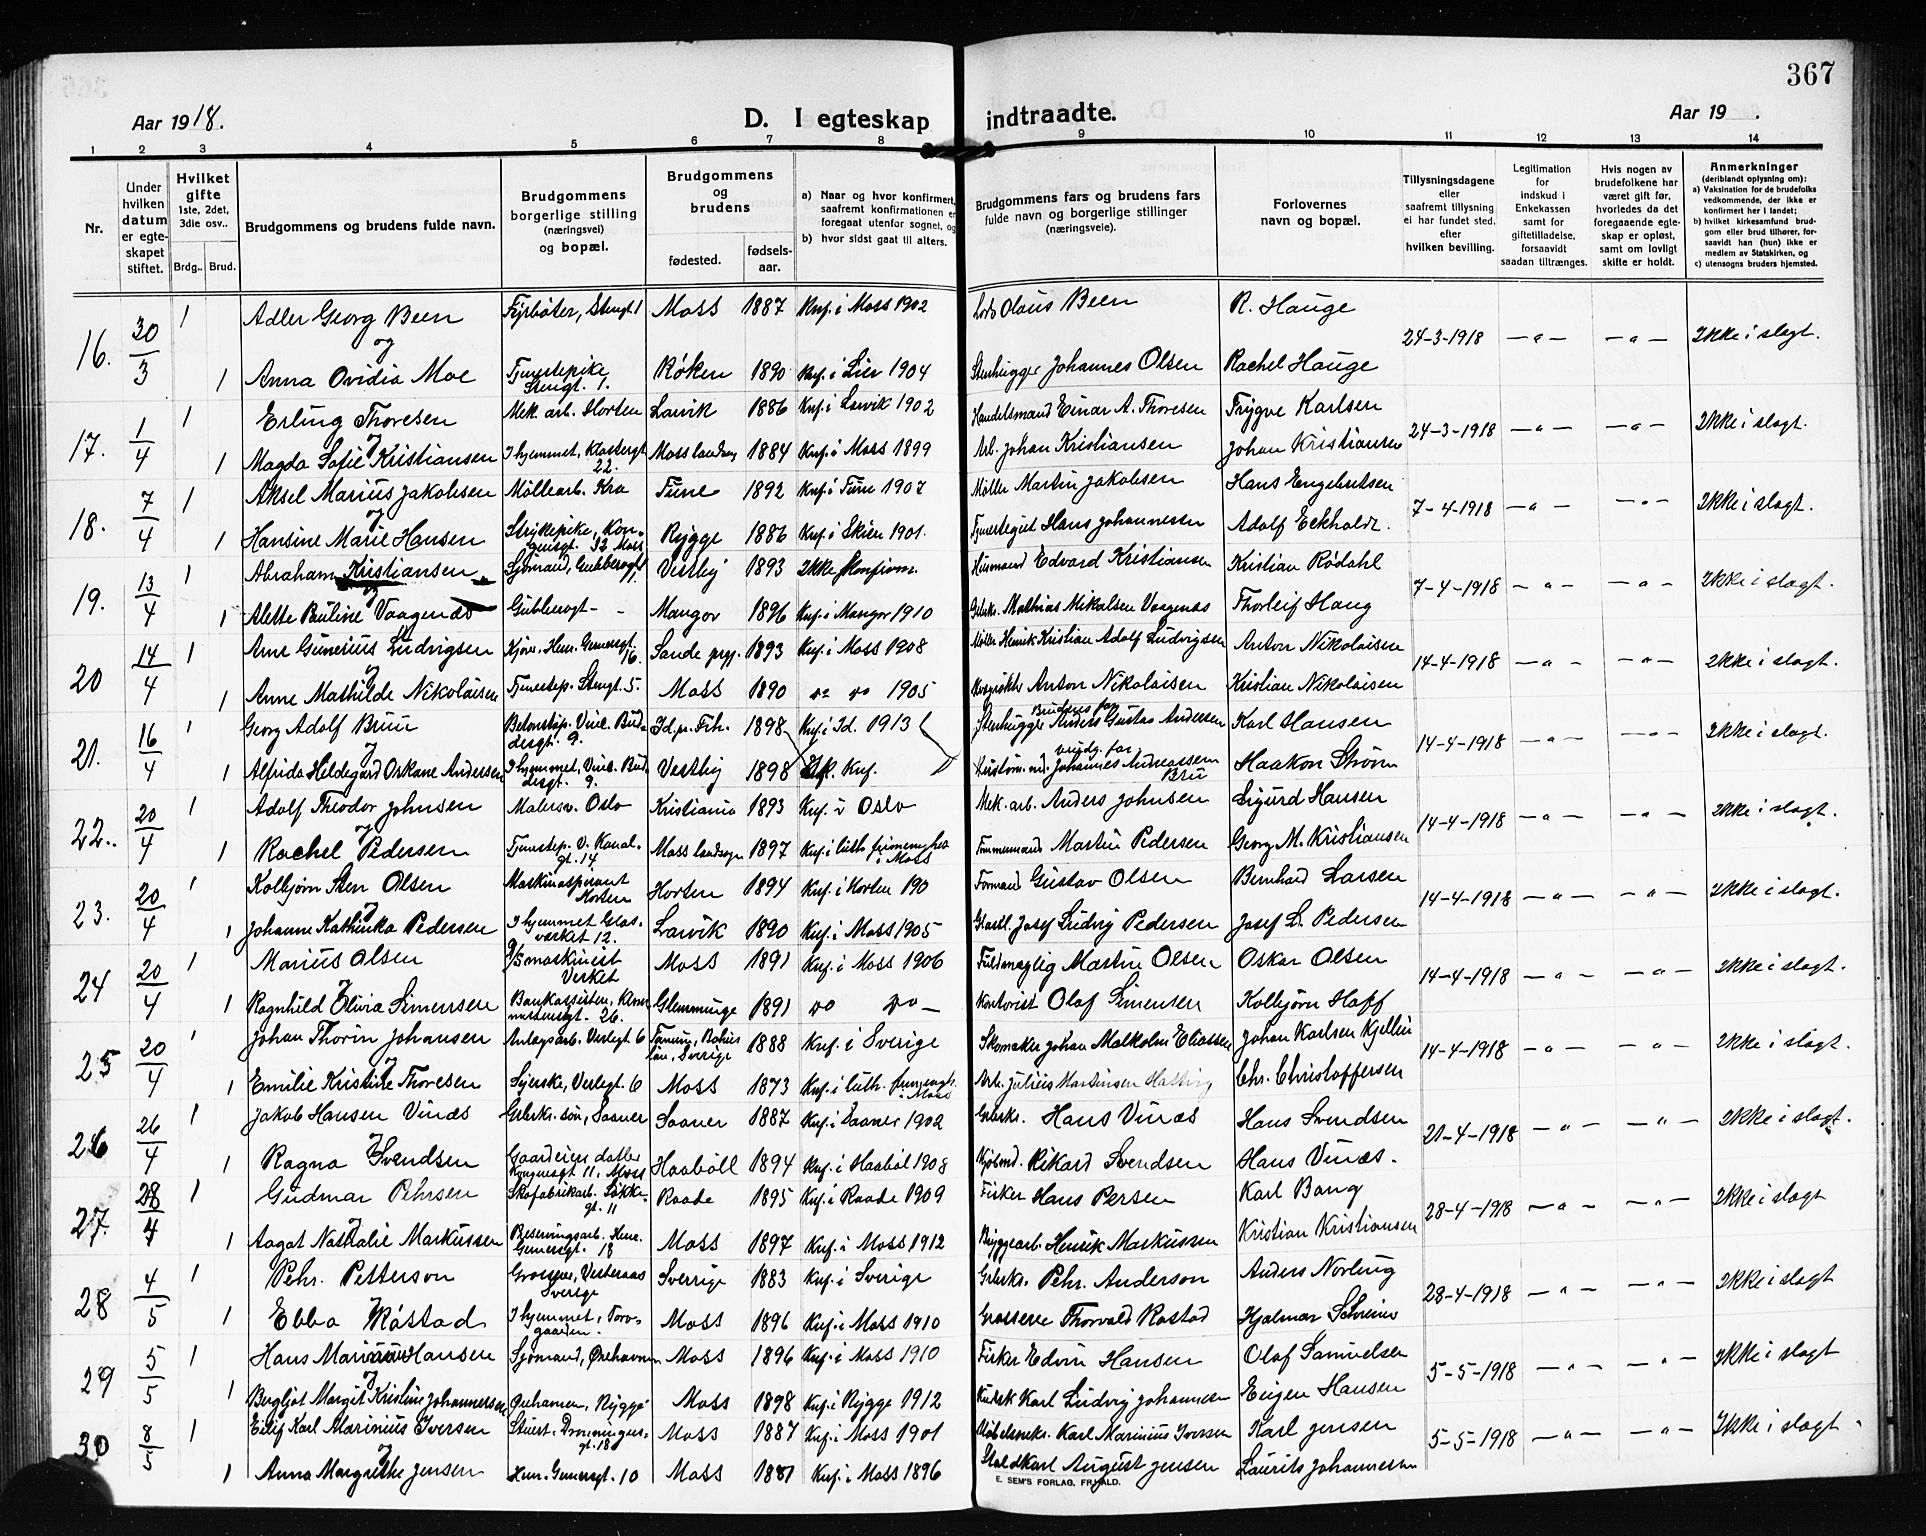 367
Aar 1918. D. I egteskap indtraadte. Aar 19 .
1 2 3 4 5 6 7 8 9 10 11 12 13 14
Nr.
Under hvilken datum er egteskapet stiftet.
Hvilket gifte 1ste, 2det, 3die osv..
Brdg.. Brud.
Brudgommens og brudens fulde navn.
Brudgommens borgerlige stilling (næringsvei) og bopæl.
Brudgommens og brudens
fødested. fødselsaar.
a) Naar og hvor konfirmert, saafremt konfirmationen er foregaat utenfor sognet, og
b) hvor sidst gaat til alters.
Brudgommens fars og brudens fars fulde navn og borgerlige stillinger (næringsveie).
Forlovernes navn og bopæl.
Tillysningsdagene eller saafremt tillysning ei har fundet sted, efter hvilken bevilling.
Legitimation for indskud i Enkekassen samt for giftetilladelse, forsaavidt saadan tiltrænges.
Hvis nogen av brudefolkene har været gift før, hvorledes da det foregaaende egteskap er opløst, samt om lovligt skifte er holdt.
Anmerkninger (deriblandt oplysning om):
a) Vaksination for de brudefolks vedkommende, der ikke er konfirmert her i landet;
b) hvilket kirkesamfund brudgom eller brud tilhører, forsaavidt han (hun) ikke er medlem av Statskirken, og
c) utensogns bruders hjemsted.
16. 30/3 1 Adler Georg Been Fyrbøter, Stengt. 1 Moss 1887 Knf. i Moss 1902 Olaus Been R. Hauge 24-3-1918 — " — — " — Ikke i slagt.
og
1 Anna Ovidia Moe Tjenestepike Stengt. 1. Røken 1890 Knf. i Lier 1904 Stenhugger Johannes Olsen Rachel Hauge
17. 1/4 1 Erling Thoresen Mek. arb. Horten Larvik 1886 Knf. i Larvik 1902 Handelsmand Einar A. Thoresen Trygve Karlsen 24-3-1918 — " — — " — Ikke i slagt.
1 Magda Sofie Kristiansen I hjemmet, Klostergt. 22. Moss landsogn 1884 Knf. i Moss 1899 Arb. Johan Kristiansen Johan Kristiansen
18. 7/4 1 Aksel Marius Jakobsen Møllearb. Kra Tune 1892 Knf. i Tune 1907 Møller Martin Jakobsen Hans Engebretsen 7-4-1918 — " — — " — Ikke i slagt.
1 Hansine Marie Hansen Strykepike, Kongensgt. 32 Moss Rygge 1886 Knf. i Skien 1901. Hans Johannesen Adolf Eckholdt.
19. 13/4 1 Abraham Kristiansen Sjømand, Vestby 1893 Ikke konfirm. Husmand Edvard Kristiansen Kristian Rødahl 7-4-1918 — " — — " — Ikke i slagt.
1 Alette Pauline Vaagenæs Mangor 1896 Knf. i Mangor 1910 Gbrkr. Mathias Mikalsen Vaagenæs Thorleif Haug
20 14/4 1 Arne Gunerius Ludvigsen Kjører, Hen. Gernersgt. 16. Sande prg. 1893 Knf. i Moss 1908 Møller Henrik Kristian Adolf Ludvigsen Anton Nikolaisen 14-4-1918 — " — — " — Ikke i slagt.
1 Anne Mathilde Nikolaisen Tjenestep. Stengt. 5. Moss 1890 do do 1905 Anton Nikolaisen Kristian Nikolaisen
21. 16/4 1 Georg Adolf Bruu Id. pr. Frh. 1898 Knf. i Id. 1913 Brudens far Stenhugger Anders Gustav Andersen Karl Hansen 14-4-1918 — " — — " — Ikke i slagt.
1 Alfrida Hildegard Orkane Andersen I hjemmet, 9. Vestby 1898 Knf. brudg. far Johannes Andreassen Bru Haakon Strøm
22.. 20/4 1 Adolf Theodor Johnsen Malersv. Oslo Kristiania 1893 Knf. i Oslo Mek. arb. Anders Johnsen Sigurd Hansen 14-4-1918 — " — — " — Ikke i slagt.
1 Rachel Pedersen Tjenestep. V. Kanalgt. 14 Moss landsogn 1897 Knf. i luth. frimenighet i Moss Tømmermand Martin Pedersen Georg M. Kristiansen
23. 20/4 1 Kolbjørn Sten Olsen Maskinaspirant Horten Horten 1894 Knf. i Horten 190 Formand Gustav Olsen Bernhard Larsen 14-4-1918 — " — — " — Ikke i slagt.
1 Johanne Kathinka Pedersen I hjemmet Glasverket 12. Larvik 1890 Knf. i Moss 1905 Josef Ludvig Pedersen Josef L. Pedersen
24 20/4 1 Marius Olsen maskinist Verket Moss 1891 Knf. i Moss 1906 Fuldmægtig Martin Olsen Oskar Olsen 14-4-1918 — " — — " — Ikke i slagt.
1 Ragnhild Elivia Simensen Bankassistent, 26. Glemminge 1891 do do — Kontorist Olaf Simensen Kolbjørn Hoff
25 20/4 1 Johan Thorin Johansen Anlægsarb. Verlegt. 6 Tanum, Bohus län, Sverige 1888 Knf. i Sverige Skomaker Johan Malkolm Eliassen Johan Karlsen Kjellin 14-4-1918 — " — — " — Ikke i slagt.
1 Emilie Kristine Thoresen Syerske, Verlegt. 6 Moss 1873 Knf. i luth. frimenigh. i Moss Arb. Julius Martinsen Chr. Christoffersen
26 26/4 1 Jakob Hansen Vinæs Gbrkr. søn, Saaner Saaner 1887 Knf. i Saaner 1902 Gbrkr. Hans Vinæs Hans Svendsen 21-4-1918 — " — — " — Ikke i slagt.
1 Ragna Svendsen Gaardeiers datter Kongensgt. 11, Moss Haaböll 1894 Knf. i Haabøl 1908 Kjøbmd. Rikard Svendsen Hans Vinæs.
27. 28/4 1 Gudmar Pehrsen Skofabrikarb. Løkkegt. 11 Raade 1895 Knf. i Raade 1909 Fisker Hans Persen Karl Bang 28-4-1918 — " — — " — Ikke i slagt
1 Aagot Nathalie Markussen Hen. Gernersgt. 18 Moss 1897 Knf. i Moss 1912 Bryggearb. Henrik Markussen Kristian Kristiansen
28 4/5 1 Pehr. Petterson Grosserer, Vesteraas Sverige Sverrige 1883 Knf. i Sverige Gbrkr. Pehr. Anderson Anders Norling 28-4-1918 — " — — " — Ikke i slagt
1 Ebba Røstad I hjemmet, Torvgaarden. Moss 1896 Knf. i Moss 1910 Grosserer Thorvald Røstad Hjalmar
29 5/5 1 Hans Marinius Hansen Sjømand, Ørehavnen Moss 1896 Knf. i Moss 1910 Fisker Edvin Hansen Olaf Samuelsen 5-5-1918 — " — — " — Ikke i slagt
1 Bergljot Margit Kristine Johannesen Ørehavnen, Rygge Moss 1898 Knf. i Rygge 1912 Kusk Karl Ludvig Johannesen Eugen Hansen
30 8/5 1 Eilif Karl Marinius Iversen Stuert. Dronningensgt. 18 Moss 1887 Knf. i Moss 1901 Møbelsnekr. Karl Marinius Iversen Karl Jensen 5-5-1918 — " — — " — Ikke i slagt
1 Anna Margrethe Jensen Hen. Gernersgt. 10 Moss 1881 Knf. i Moss 1896 Staldkarl August Jensen Laurits Johannesen
E. SEM'S FORLAG, FR.HALD.